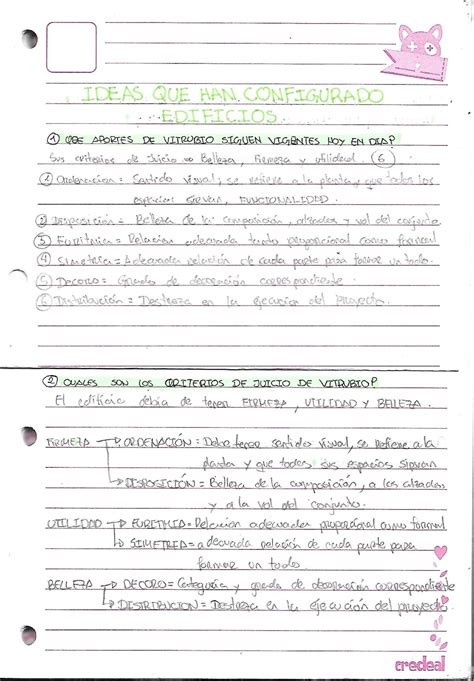 IDEAS QUE HAN CONFIGURADO
EDIFICIOS
① QUE APORTES DE VITRUBIO SIGUEN VIGENTES HOY EN DIA?
Sus criterios de Juicio => Belleza, Firmeza y utilidad. (6)
① Ordenacion = Sentido visual; se refiere a la planta y que todos los
espacios sirvan, FUNCIONALIDAD.
② Disposición = Belleza de la composición, alzados y vol del conjunto
③ Euritmia = Relacion adecuada tanto proporcional como formal
④ Simetria = Adecuada relación de cada parte para formar un todo.
⑤ Decoro = Grado de decoración correspondiente
⑥ Distribución = Destreza en la ejecucion del Proyecto.
② CUALES SON LOS CRITERIOS DE JUICIO DE VITRUBIO?
El edificio debia de tener FIRMEZA, UTILIDAD Y BELLEZA.
FIRMEZA → ORDENACIÓN = Debe tener sentido visual, se refiere a la
planta y que todos sus espacios sirvan
→ DISPOSICIÓN = Belleza de la composición, a los alzados
y a la vol del conjunto.
UTILIDAD → EURITMIA = Relacion adecuada proporcional como formal
→ SIMETRIA = adecuada relación de cada parte para
formar un todo.
BELLEZA → DECORO = Categoria y grado de decoración correspondiente
→ DISTRIBUCION = Destreza en la ejecución del proyecto
credeal